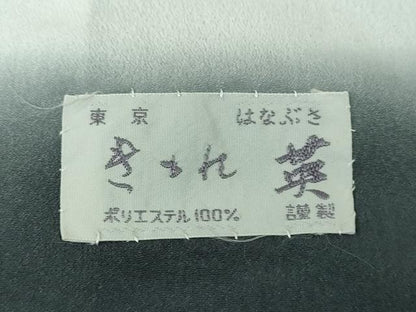 東京 はなぶさ
きもれ 英
ポリエステル100% 謹製